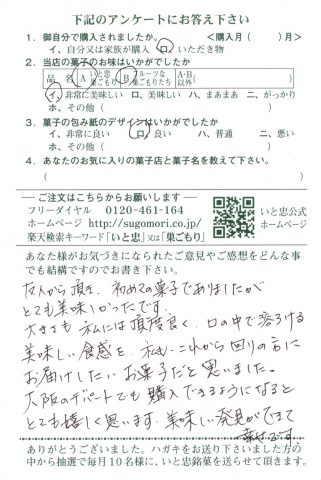 下記のアンケートにお答え下さい
1. 御自分で購入されましたか。 <購入月( )月>
イ、自分又は家族が購入 ロ、いただき物
2. 当店の菓子のお味はいかがでしたか
品名 A いと忠巣ごもり B フルーツな巣ごもりたち A・B以外( )
イ、非常に美味しい ロ、美味しい ハ、まあまあ ニ、がっかり
ホ、その他( )
3. 菓子の包み紙のデザインはいかがでしたか
イ、非常に良い ロ、良い ハ、普通 ニ、悪い
ホ、その他( )
4. あなたのお気に入りの菓子店と菓子名を教えて下さい。
( )
ご注文はこちらからお願いします
フリーダイヤル 0120-461-164
ホームページ http://sugomori.co.jp/
楽天検索キーワード「いと忠」又は「巣ごもり」
いと忠公式
ホームページ
あなた様がお気づきになられたご意見やご感想をどんな事
でも結構ですのでお書き下さい。
友人から頂き、初めての菓子でありましたが
とても美味しかったです。
大きさも私には丁度良く、口の中で溶ろける
美味しい食感を、私も、これから回りの方に
お届けしたいお菓子だと思いました。
大阪のデパートでも購入できるようになると
とても嬉しく思います。美味しい発見ができて
幸せです。
ありがとうございました。ハガキをお送り下さいました方の
中から抽選で毎月10名様に、いと忠銘菓を送らせて頂きます。